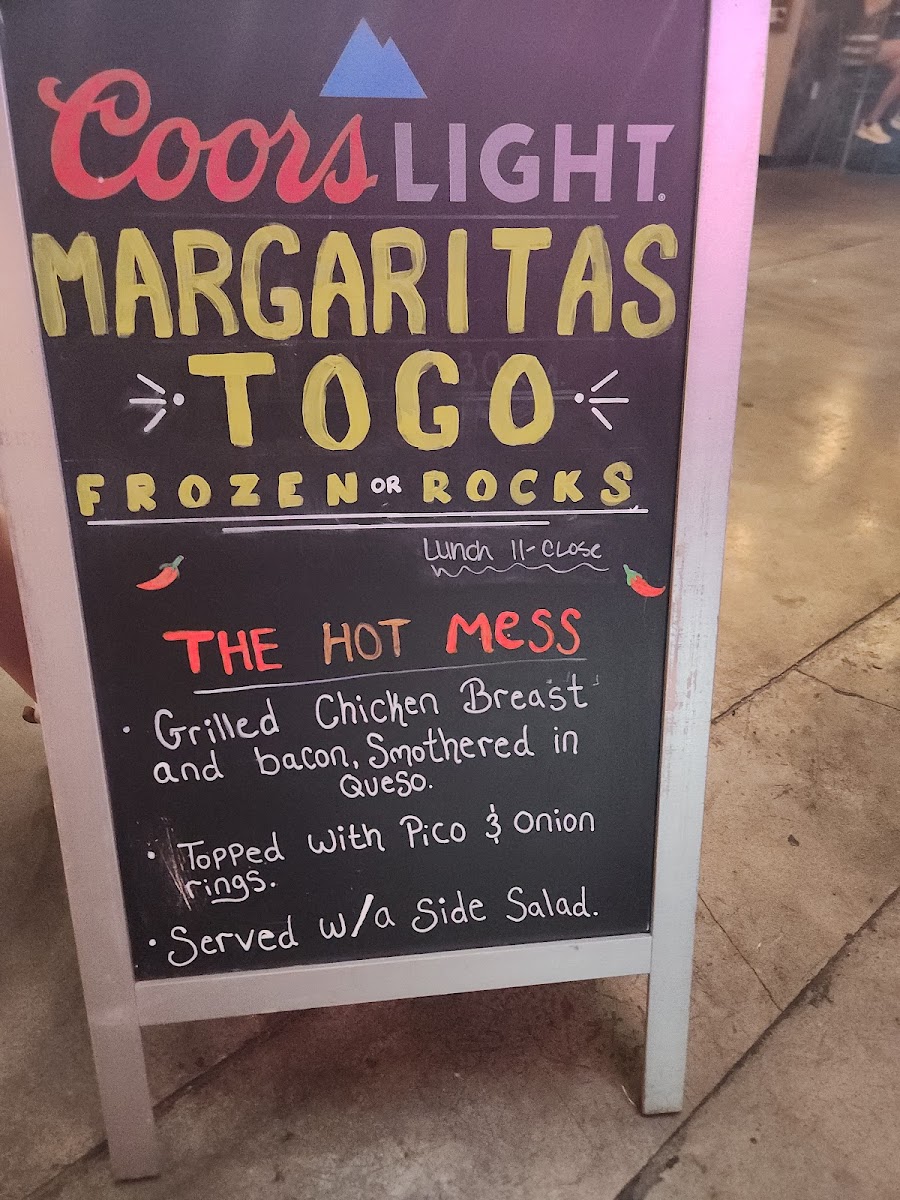 Coors LIGHT®
MARGARITAS
TOGO
FROZEN OR ROCKS
Lunch 11-Close
THE HOT MeSS
• Grilled Chicken Breast
and bacon, Smothered in
Queso.
• Topped with Pico & Onion
rings.
• Served w/a Side Salad.